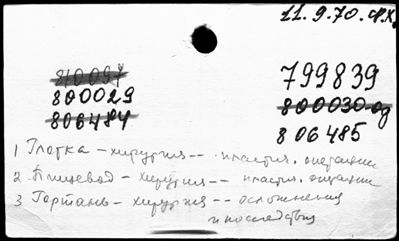 11.9.70.
799839
800029
800030-од
806484
806485
1 Глотка - хирургия -- пластич. операции
2. Пищевод - хирургия -- пластич. операции
3 Гортань - хирургия -- осложнения
и последствия